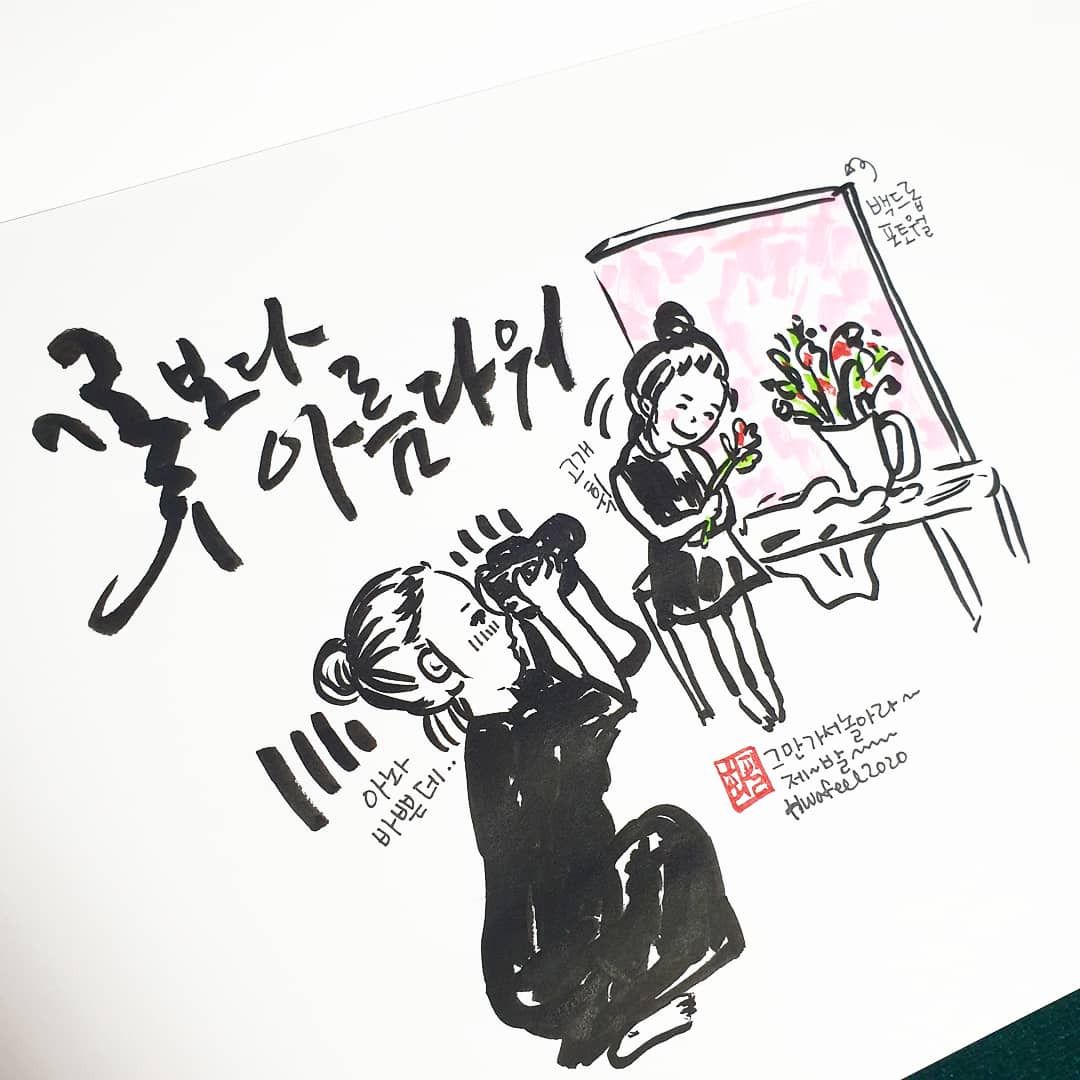 꽃보다
아름다워
백드롭
포토월
고개
아놔
바쁜데..
그만가서놀아라~
제~발~~~
Hwafeel2020